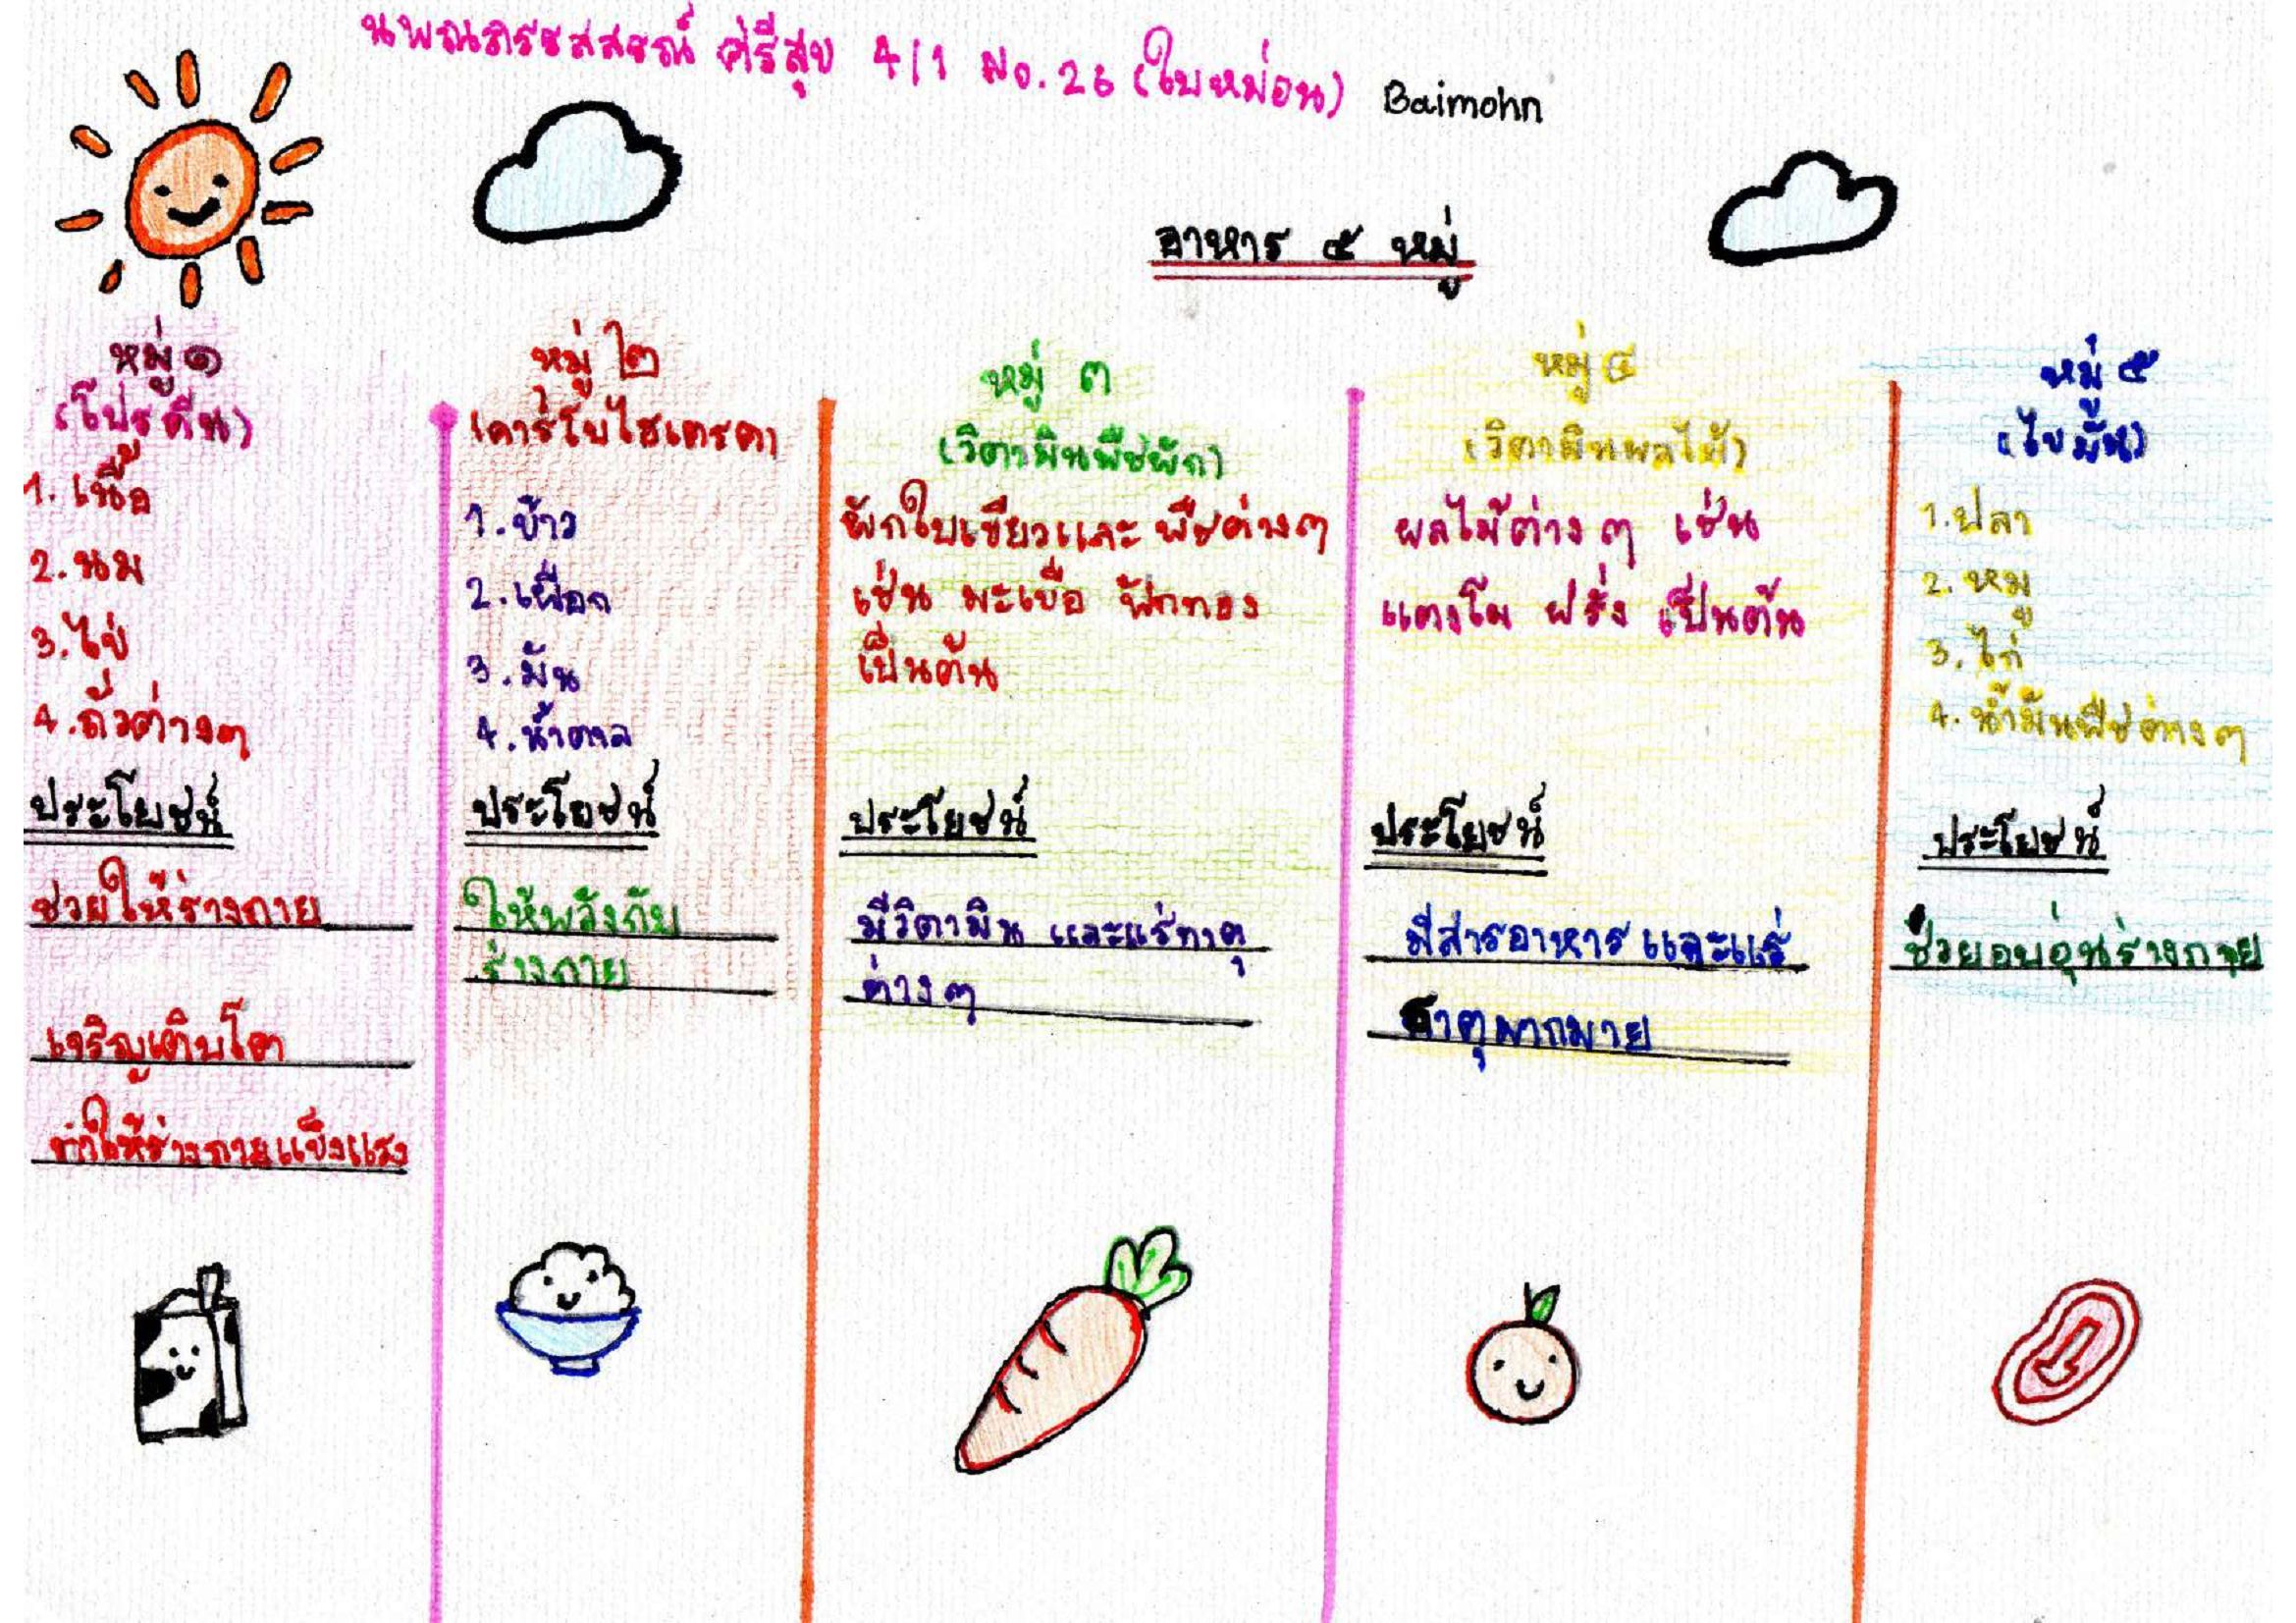 ศรีสุข 4/1 No.26 (ใบหม่อน) Baimohn
อาหาร ๕ หมู่
หมู่ ๑
(โปรตีน)
1. เนื้อ
2. นม
3. ไข่
4. ถั่วต่างๆ
ประโยชน์
ช่วยให้ร่างกาย
เจริญเติบโต
ทำให้ร่างกายแข็งแรง
หมู่ ๒
(คาร์โบไฮเดรต)
1. ข้าว
2. เผือก
3. มัน
4. น้ำตาล
ประโยชน์
ให้พลังกับ
ร่างกาย
หมู่ ๓
(วิตามินพืชผัก)
ผักใบเขียวและ พืชต่างๆ
เช่น มะเขือ ฟักทอง
เป็นต้น
ประโยชน์
มีวิตามิน และแร่ทาตุ
ต่างๆ
หมู่ ๔
(วิตามินผลไม้)
ผลไม้ต่าง ๆ เช่น
แตงโม ฝรั่ง เป็นต้น
ประโยชน์
มีสารอาหาร และแร่
ธาตุมากมาย
หมู่ ๕
(ไขมัน)
1. ปลา
2. หมู
3. ไก่
4. น้ำมันพืชต่างๆ
ประโยชน์
ช่วยอบอุ่นร่างกาย